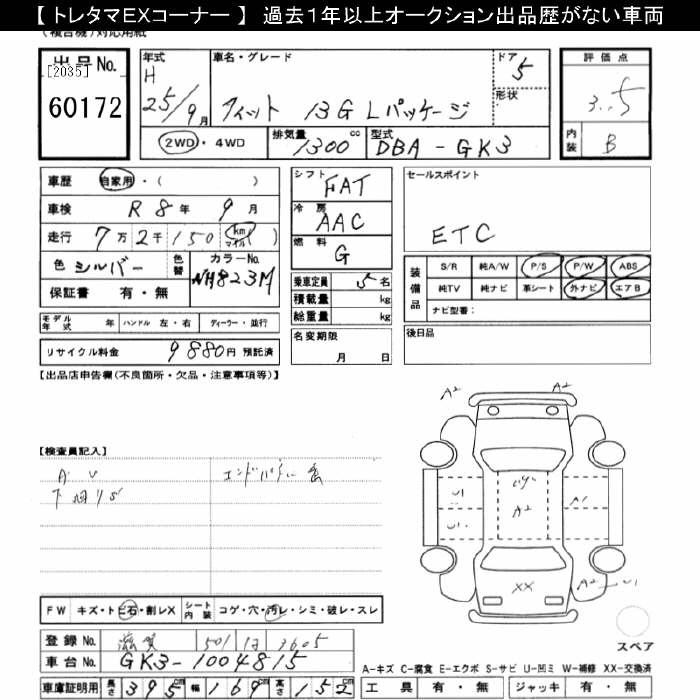 【 トレタマEXコーナー 】 過去１年以上オークション出品歴がない車両
(複合機)対応用紙
出品No.
[2035]
60172
年式 H 25/9月
車名・グレード フィット 13G Lパッケージ
ドア 5
形状
評価点 3.5
内装 B
2WD・4WD
排気量 1300cc
型式 DBA-GK3
車歴 自家用・( )
車検 R8年 9月
走行 7万2千150(km マイル)
色 シルバー
色替
カラーNo. NH823M
保証書 有・無
シフト FAT
冷房 AAC
燃料 G
乗車定員 5名
積載量 kg
総重量 kg
名変期限 月 日
セールスポイント
ETC
装備品
S/R 純A/W P/S P/W ABS
純TV 純ナビ 革シート 外ナビ エアB
ナビ型番:
後日品
モデル年式 年 ハンドル 左・右 ディーラー・並行
リサイクル料金 9880円 預託済
【出品店申告欄(不良箇所・欠品・注意事項等)】
【検査員記入】
A U
下廻りS
A2 A2
U1 A1
U1 A2
XX A2 U1
FW キズ・トビ石・割レX シート内装 コゲ・穴・汚レ・シミ・破レ・スレ
登録No. 滋賀 501 3605
車台No. GK3-1004815
車庫証明用 長さ 395cm 幅 169cm 高さ 152cm
スペア
A-キズ C-腐食 E-エクボ S-サビ U-凹ミ W-補修 XX-交換済
工具 有・無 ジャッキ 有・無